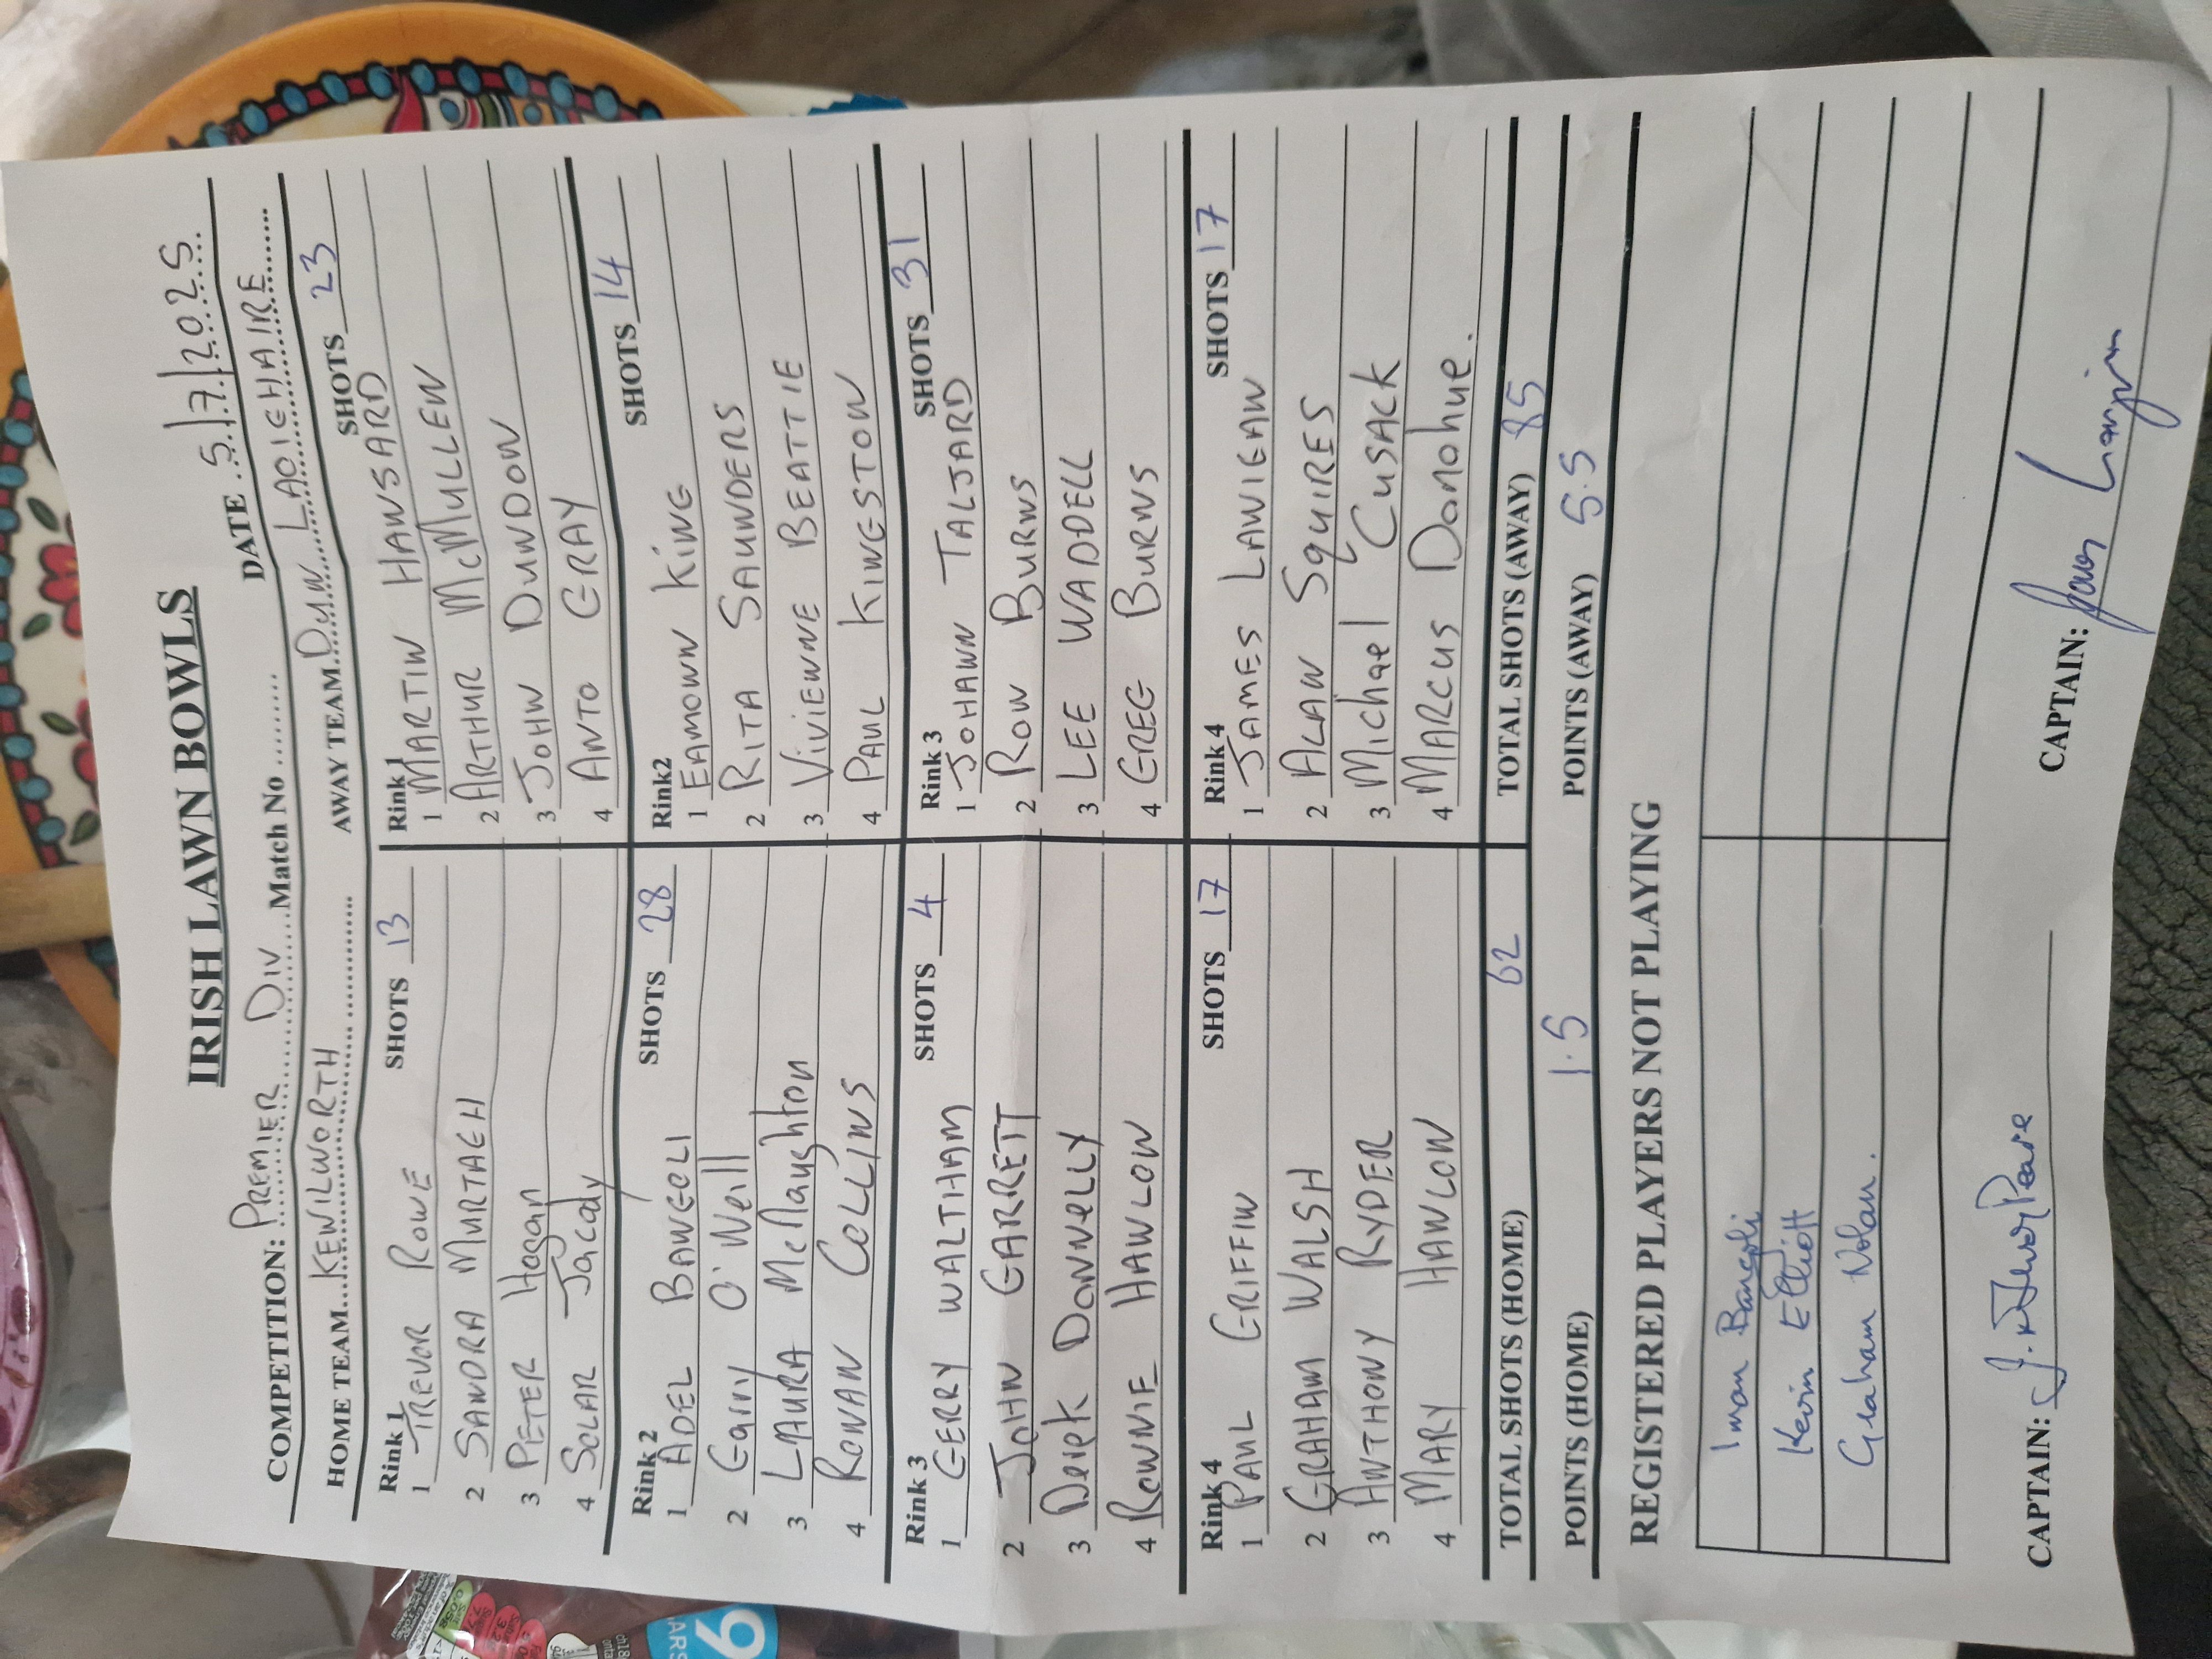 IRISH LAWN BOWLS
COMPETITION: PREMIER DIV Match No ......... DATE 5/7/2025
HOME TEAM KENILWORTH AWAY TEAM DUN LAOIGHAIRE
Rink 1 SHOTS 13
1 TREVOR ROWE
2 SANDRA MURTAGH
3 PETER Hagan
4 SOLAR Jacady
Rink 1 SHOTS 23
1 MARTIN HANSARD
2 ARTHUR McMULLEN
3 JOHN DUNDON
4 ANTO GRAY
Rink 2 SHOTS 28
1 ADEL BANGOLI
2 Garry O'Neill
3 LAURA McNaughton
4 RONAN COLLINS
Rink2 SHOTS 14
1 EAMONN KING
2 RITA SAUNDERS
3 VIVIENNE BEATTIE
4 PAUL KINGSTON
Rink 3 SHOTS 4
1 GERRY WALTHAM
2 JOHN GARRETT
3 Derek DONNELLY
4 RONNIE HANLON
Rink 3 SHOTS 31
1 JOHANN TALJARD
2 RON BURNS
3 LEE WADDELL
4 GREG BURNS
Rink 4 SHOTS 17
1 PAUL GRIFFIN
2 GRAHAM WALSH
3 ANTHONY RYDER
4 MARY HANLON
Rink 4 SHOTS 17
1 JAMES LANIGAN
2 ALAN SQUIRES
3 Michael CUSACK
4 MARCUS Donohue.
TOTAL SHOTS (HOME) 62 TOTAL SHOTS (AWAY) 85
POINTS (HOME) 1.5 POINTS (AWAY) 5.5
REGISTERED PLAYERS NOT PLAYING
Iman Bangoli
Kevin Elliott
Graham Nolan.
CAPTAIN: CAPTAIN: